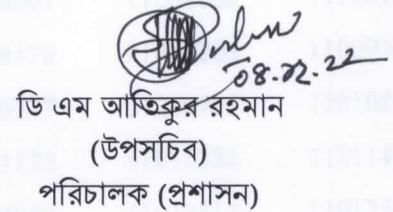 08.02.22
ডি এম আতিকুর রহমান
(উপসচিব)
পরিচালক (প্রশাসন)